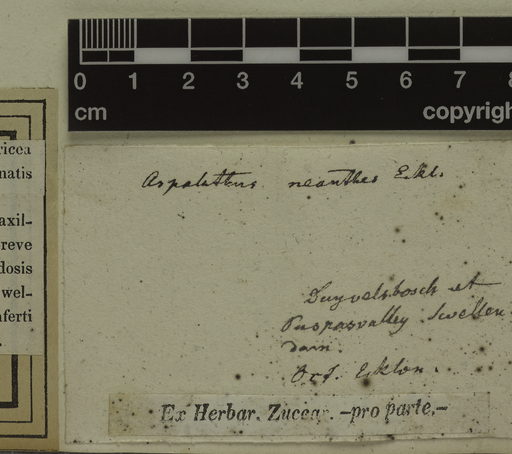 0 1 2 3 4 5 6 7 8
cm copyrigh
ricea
matis
axil-
reve
dosis
wel-
nferti
Aspalathus neanthes Eckl.
Duyvelsbosch et
Puspasvalley Swellen
dam.
Oct. Ecklon.
Ex Herbar. Zuccar. -pro parte.-